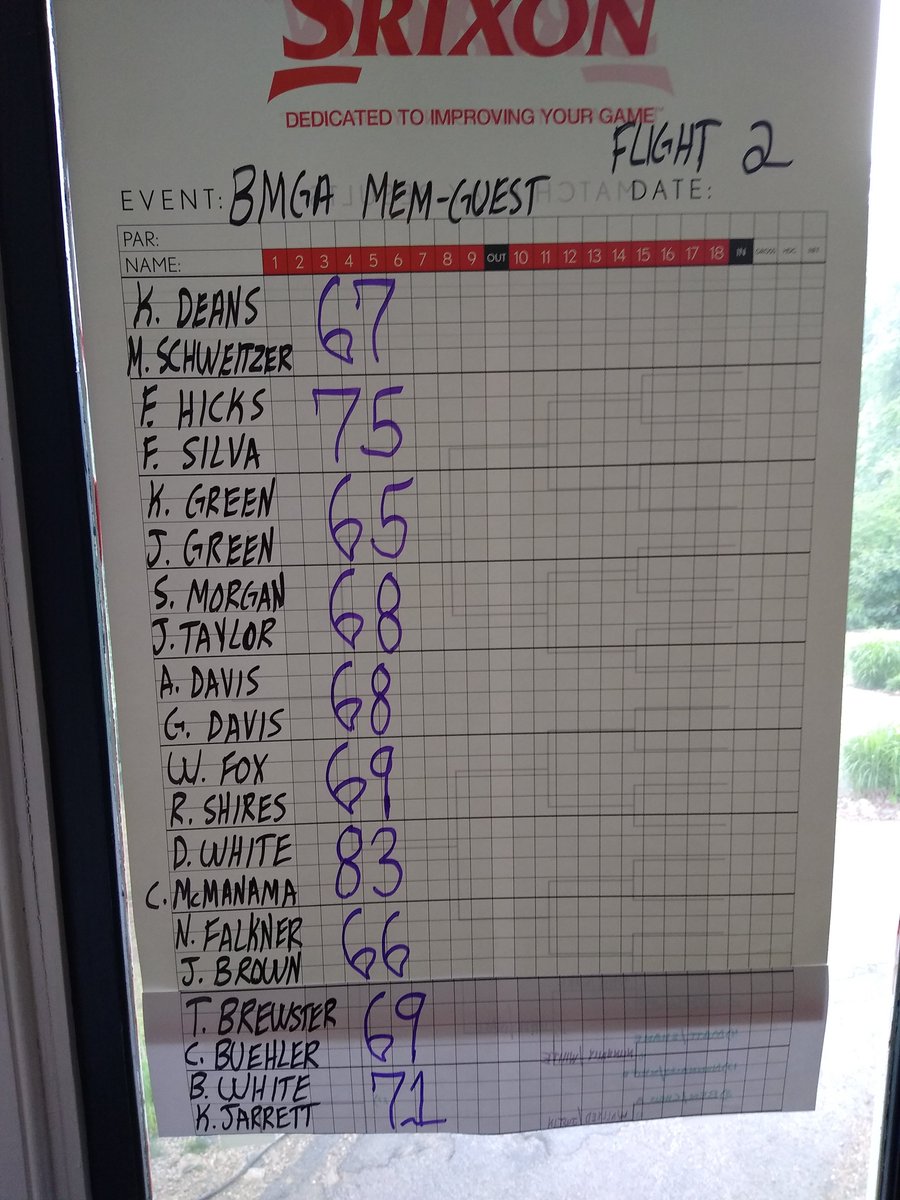 SRIXON
DEDICATED TO IMPROVING YOUR GAME
FLIGHT 2
EVENT: BMGA MEM-GUEST DATE:
PAR:
NAME: 1 2 3 4 5 6 7 8 9 OUT 10 11 12 13 14 15 16 17 18 IN GROSS HDC NET
K. DEANS
67
M. SCHWEITZER
F. HICKS
75
F. SILVA
K. GREEN
65
J. GREEN
S. MORGAN
68
J. TAYLOR
A. DAVIS
68
G. DAVIS
W. FOX
69
R. SHIRES
D. WHITE
83
C. McMANAMA
N. FALKNER
66
J. BROWN
T. BREWSTER
69
C. BUEHLER
B. WHITE
71
K. JARRETT